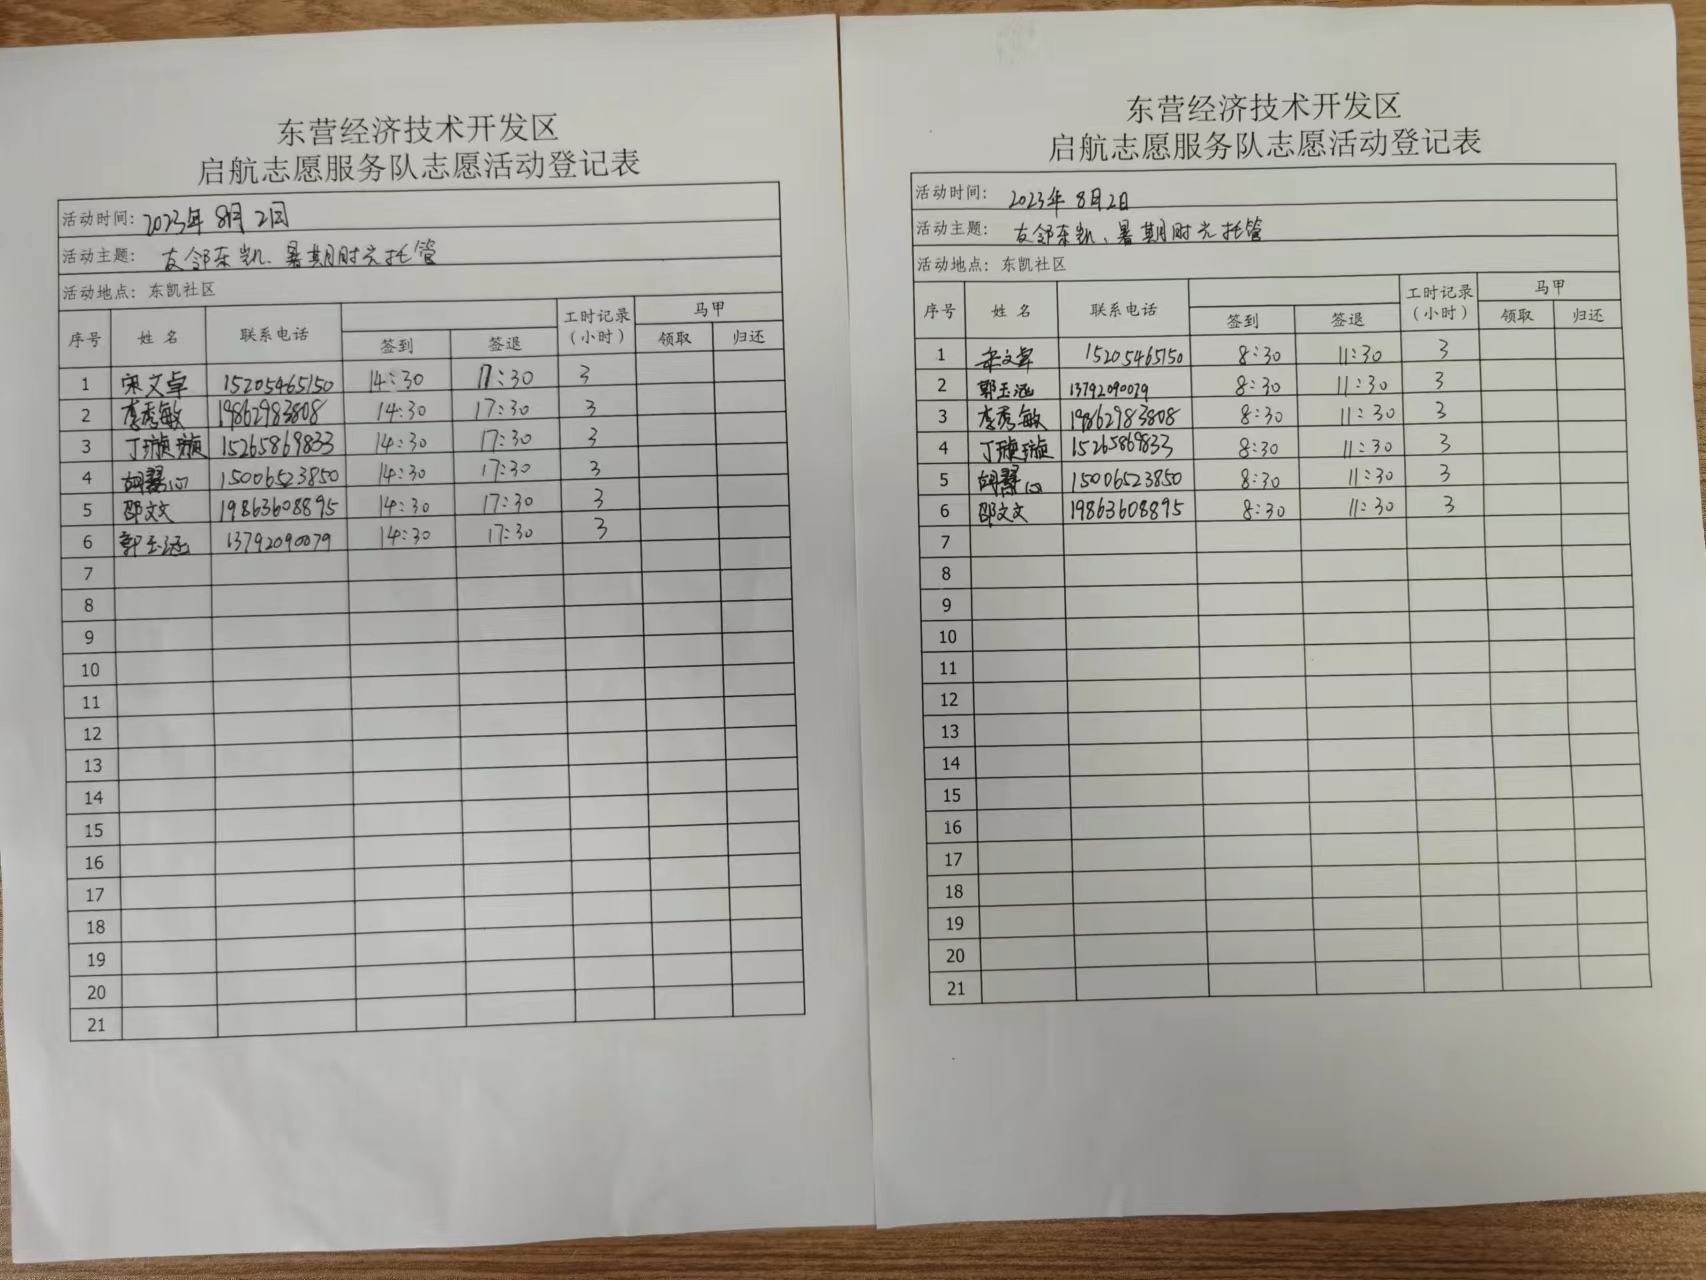 东营经济技术开发区
启航志愿服务队志愿活动登记表
活动时间: 2023年 8月 2日
活动主题: 友邻东凯、暑期时光托管
活动地点: 东凯社区
序号 姓名 联系电话 工时记录(小时) 马甲
签到 签退 领取 归还
1 宋文卓 15205465150 14:30 17:30 3
2 李秀敏 19862983808 14:30 17:30 3
3 丁璇璇 15265869833 14:30 17:30 3
4 15006523850 14:30 17:30 3
5 邵文文 19863608895 14:30 17:30 3
6 郭玉涵 13792090079 14:30 17:30 3
7
8
9
10
11
12
13
14
15
16
17
18
19
20
21
东营经济技术开发区
启航志愿服务队志愿活动登记表
活动时间: 2023年 8月2日
活动主题: 友邻东凯、暑期时光托管
活动地点: 东凯社区
序号 姓名 联系电话 工时记录(小时) 马甲
签到 签退 领取 归还
1 宋文卓 15205465150 8:30 11:30 3
2 郭玉涵 13792090079 8:30 11:30 3
3 李秀敏 19862983808 8:30 11:30 3
4 丁璇璇 15265869833 8:30 11:30 3
5 15006523850 8:30 11:30 3
6 邵文文 19863608895 8:30 11:30 3
7
8
9
10
11
12
13
14
15
16
17
18
19
20
21